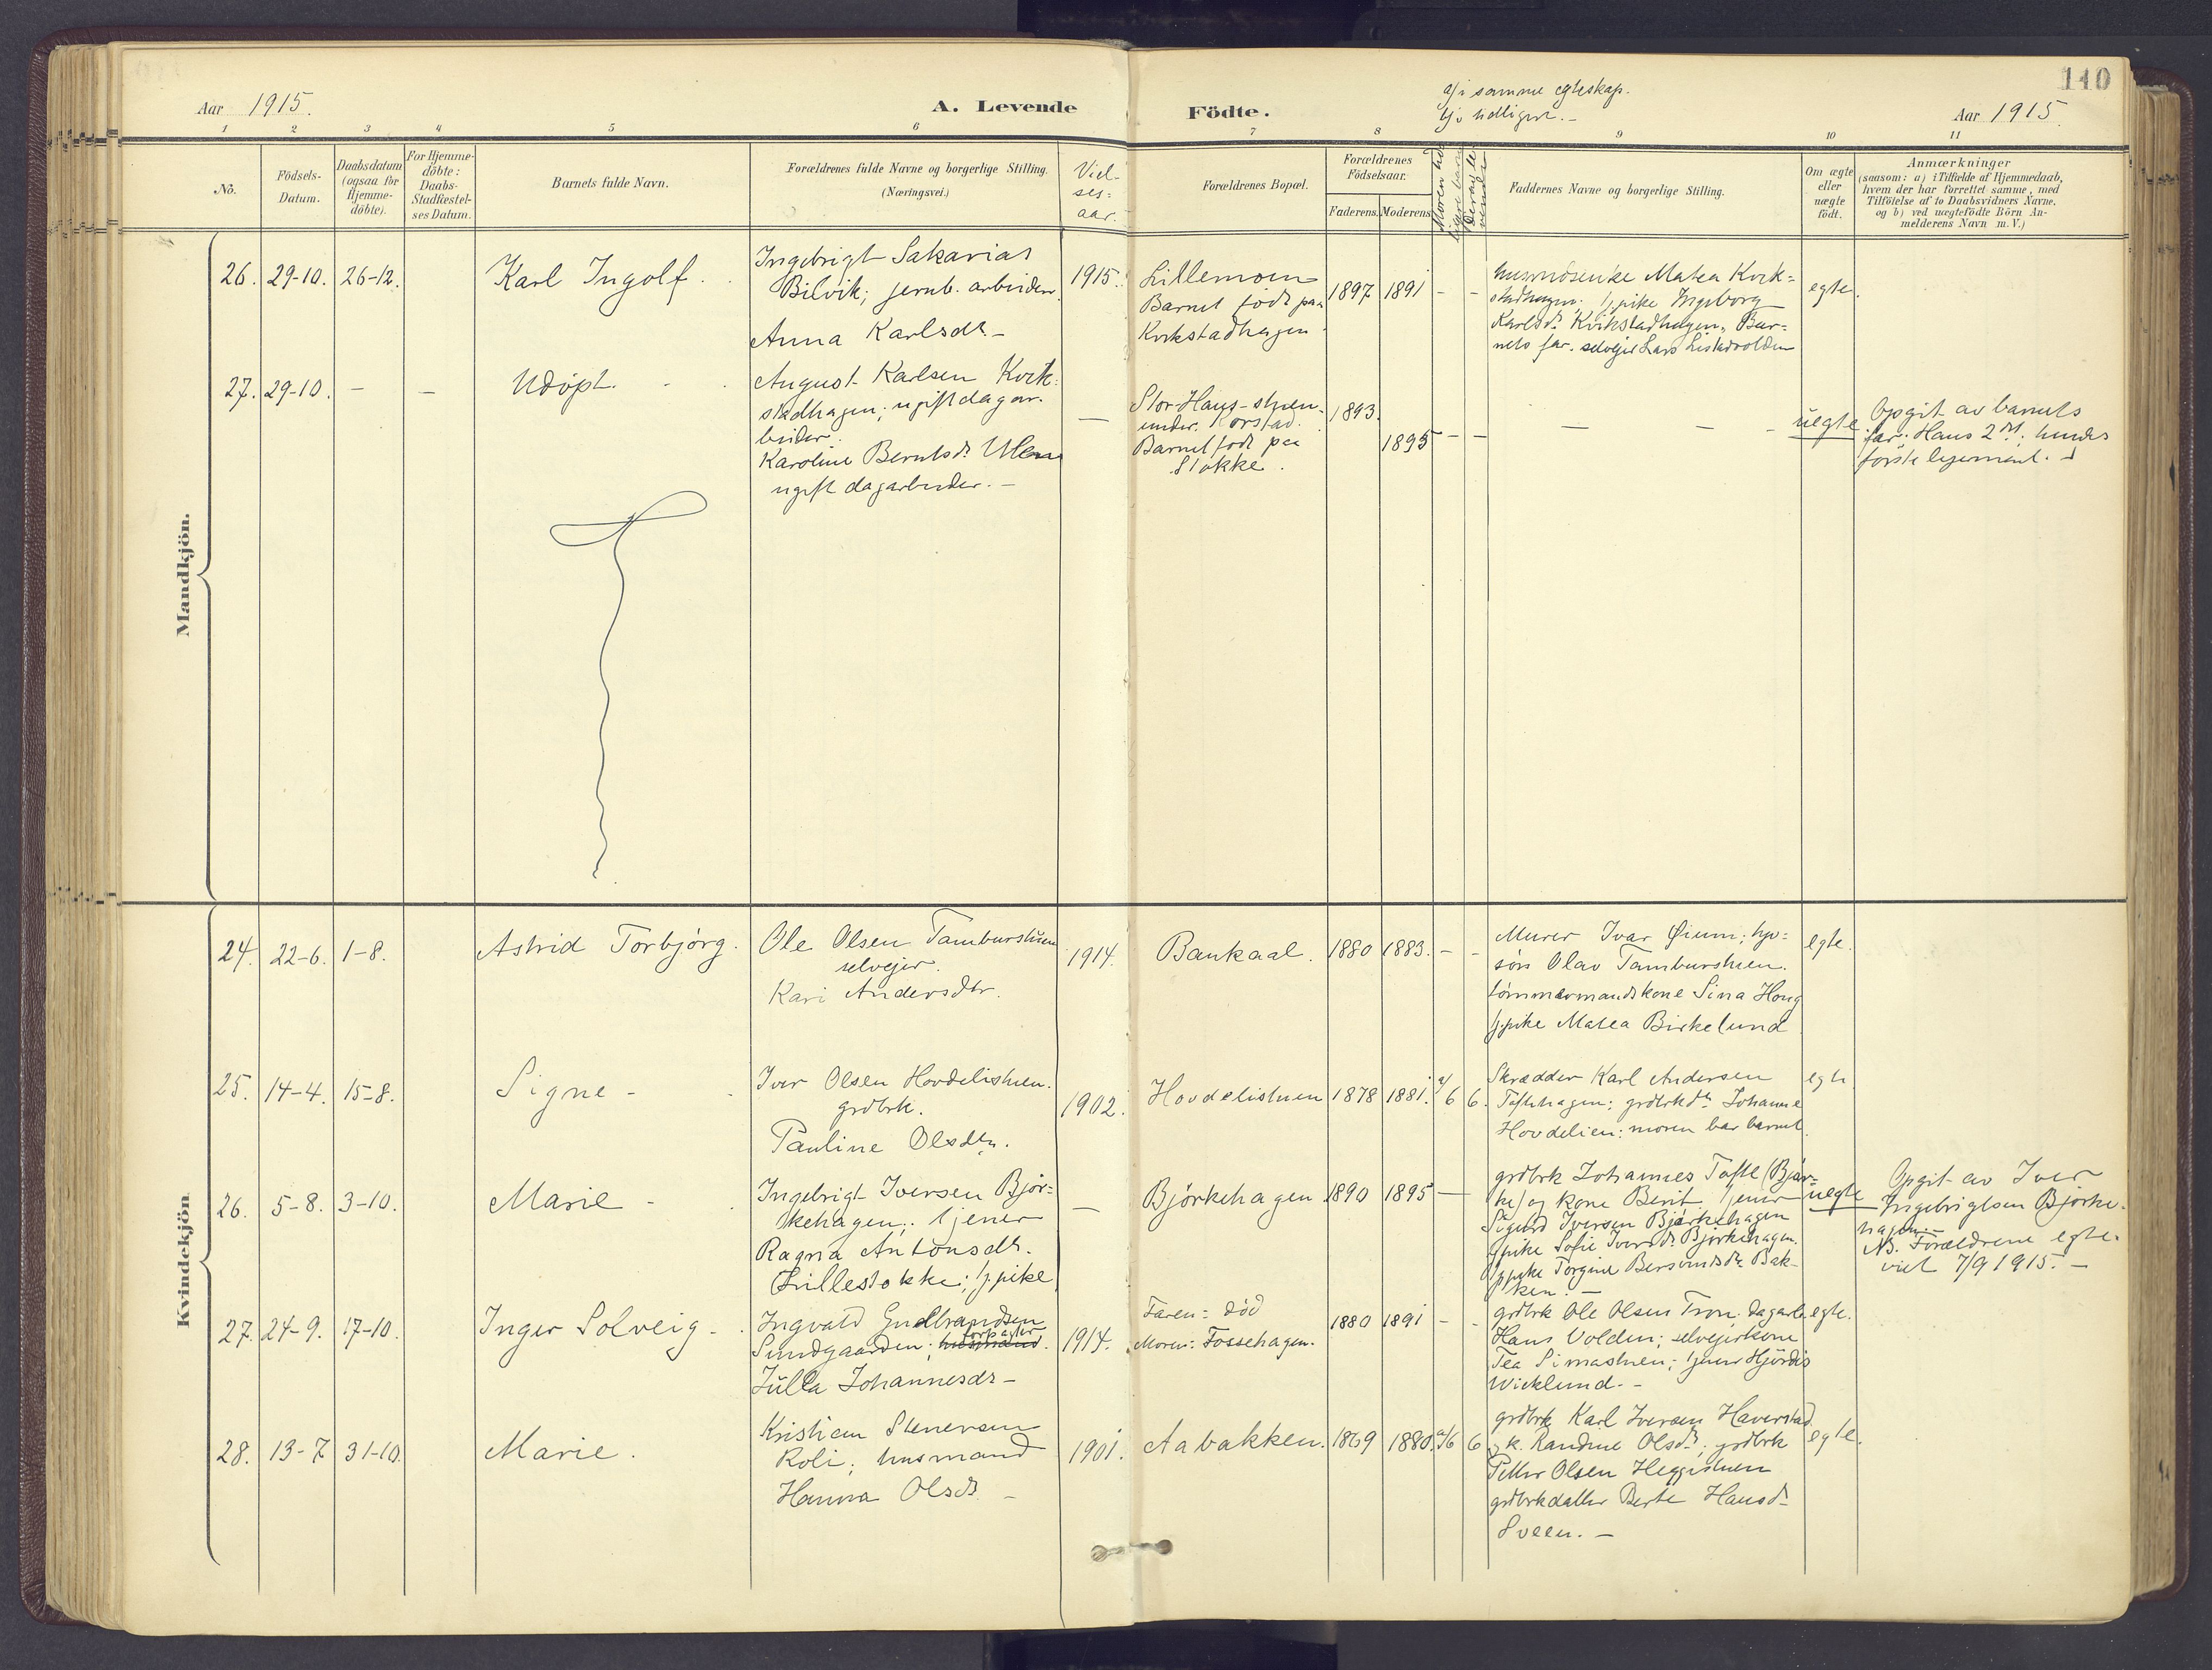 110
Aar 1915.
A. Levende
Födte.
a) i samme egteskap.
b) i tidligere. -
Aar 1915
1 2 3 4 5 6 7 8 9 10 11
No.
Födsels-
Datum.
Daabsdatum
(ogsaa for
Hjemme-
döbte).
For Hjemme-
döbte:
Daabs-
Stadfæstel-
ses Datum.
Barnets fulde Navn.
Forældrenes fulde Navne og borgerlige Stilling.
(Næringsvei.)
Viel-
ses-
aar.
Forældrenes Bopæl.
Forældrenes
Födselsaar.
Faderens.
Moderens.
Faddernes Navne og borgerlige Stilling.
Om ægte
eller
uægte
födt.
Anmærkninger
(saasom: a) i Tilfælde af Hjemmedaab,
hvem der har forrettet samme, med
Tilföielse af to Daabsvidners Navne,
og b) ved uægtefödte Börn An-
melderens Navn m. V.)
Mandkjön.
26. 29-10. 26-12.
Karl Ingolf.
Ingebrigt Sakarias
Bilvik; jernb. arbeider
Anna Karlsdr -
1915.
Lillemoen
Barnet född paa
Kvikstadhagen
1897 1891 - -
husmandsenke Matea Kvik=
stadhagen; tj. pike Ingeborg
Karlsdr Kvikstadhagen, Bar=
nets far. selveier Lars Listadvolden
egte.
27. 29-10. - -
Udöpt.
August Karlsen Kvik=
stadhagen; ugift dagar.
beider.
Karoline Berntsdr Ulen
ugift dagarbeider. -
-
Stor-Haug-stuen
under Korstad.
Barnet född paa
Stokke.
1893.
1895 - -
- - -
uegte.
Opgit av barnets
far. Hans 2det; hendes
förste leiermaal.
Kvindekjön
24. 22-6. 1-8.
Astrid Torbjörg.
Ole Olsen Tamburstuen
selveier.
Kari Andersdtr.
1914.
Bankaal.
1880 1883. - -
Murer Ivar Öium;
sön Olav Tamburstuen.
tömmermandskone Sina Haug
tj. pike Matea Birkelund
egte.
25. 14-4. 15-8.
Signe -
Iver Olsen Hovdelistuen.
grdbrk.
Pauline Olsdtr.
1902.
Hovdelistuen
1878 1881. a/6 6.
Skrædder Karl Andersen
Toftehagen; grdbrkdtr Johanne
Hovdelien; moren bar barnet.
egte
26. 5-8. 3-10.
Marie -
Ingebrigt Iversen Björ=
kehagen; tjener
Ragna Antonsdtr.
Lillestokke; tj. pike
-
Björkehagen
1890 1895 -
grdbrk Johannes Tofte (Bjør=
ke) og kone Berit, tjener
Sigurd Iversen Björkehagen
tj. pike Sofie Iversdr Björkehagen.
tj. pike Torgine Bersvendsdr Bak-
ken. -
uegte
Opgit av Iver
Ingebrigtsen Björke-
hagen. -
NB. Forældrene egte-
viet 7/9 1915. -
27. 24-9. 17-10.
Inger Solveig -
Ingvald Gudbrandsen
forpagter
Sundgaarden; husmand.
Julla Johannesdr -
1914.
Faren: död
Moren: Fossehagen.
1880 1891 - -
grdbrk Ole Olsen Tron. dagarb.
Hans Volden; selveierkone
Tea Simastuen; tjener Hjördis
Wicklund. -
egte.
28. 13-7 31-10.
Marie.
Kristian Stenersen
Roli; husmand
Hanna Olsdr -
1901.
Aabakken.
1869 1880. a/6 6
grdbrk Karl Iversen Haverstad
og k. Randine Olsdr; grdbrk
Petter Olsen Heggestuen
grdbrkdatter Berte Hansd-
Sveen. -
egte.